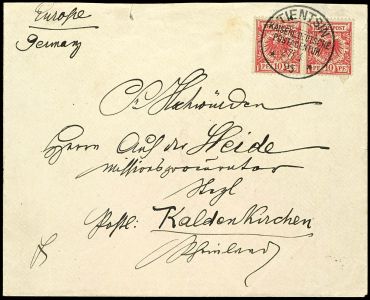 Europe
Germany
TIENTSIN
KAISERL. DEUTSCHE
POSTAGENTUR
10 PF. 10 PF.
Sr. Hochwürden
Herrn Auf der Heide
Missionsprocurator
Steyl
Postl: Kaldenkirchen
Rheinland